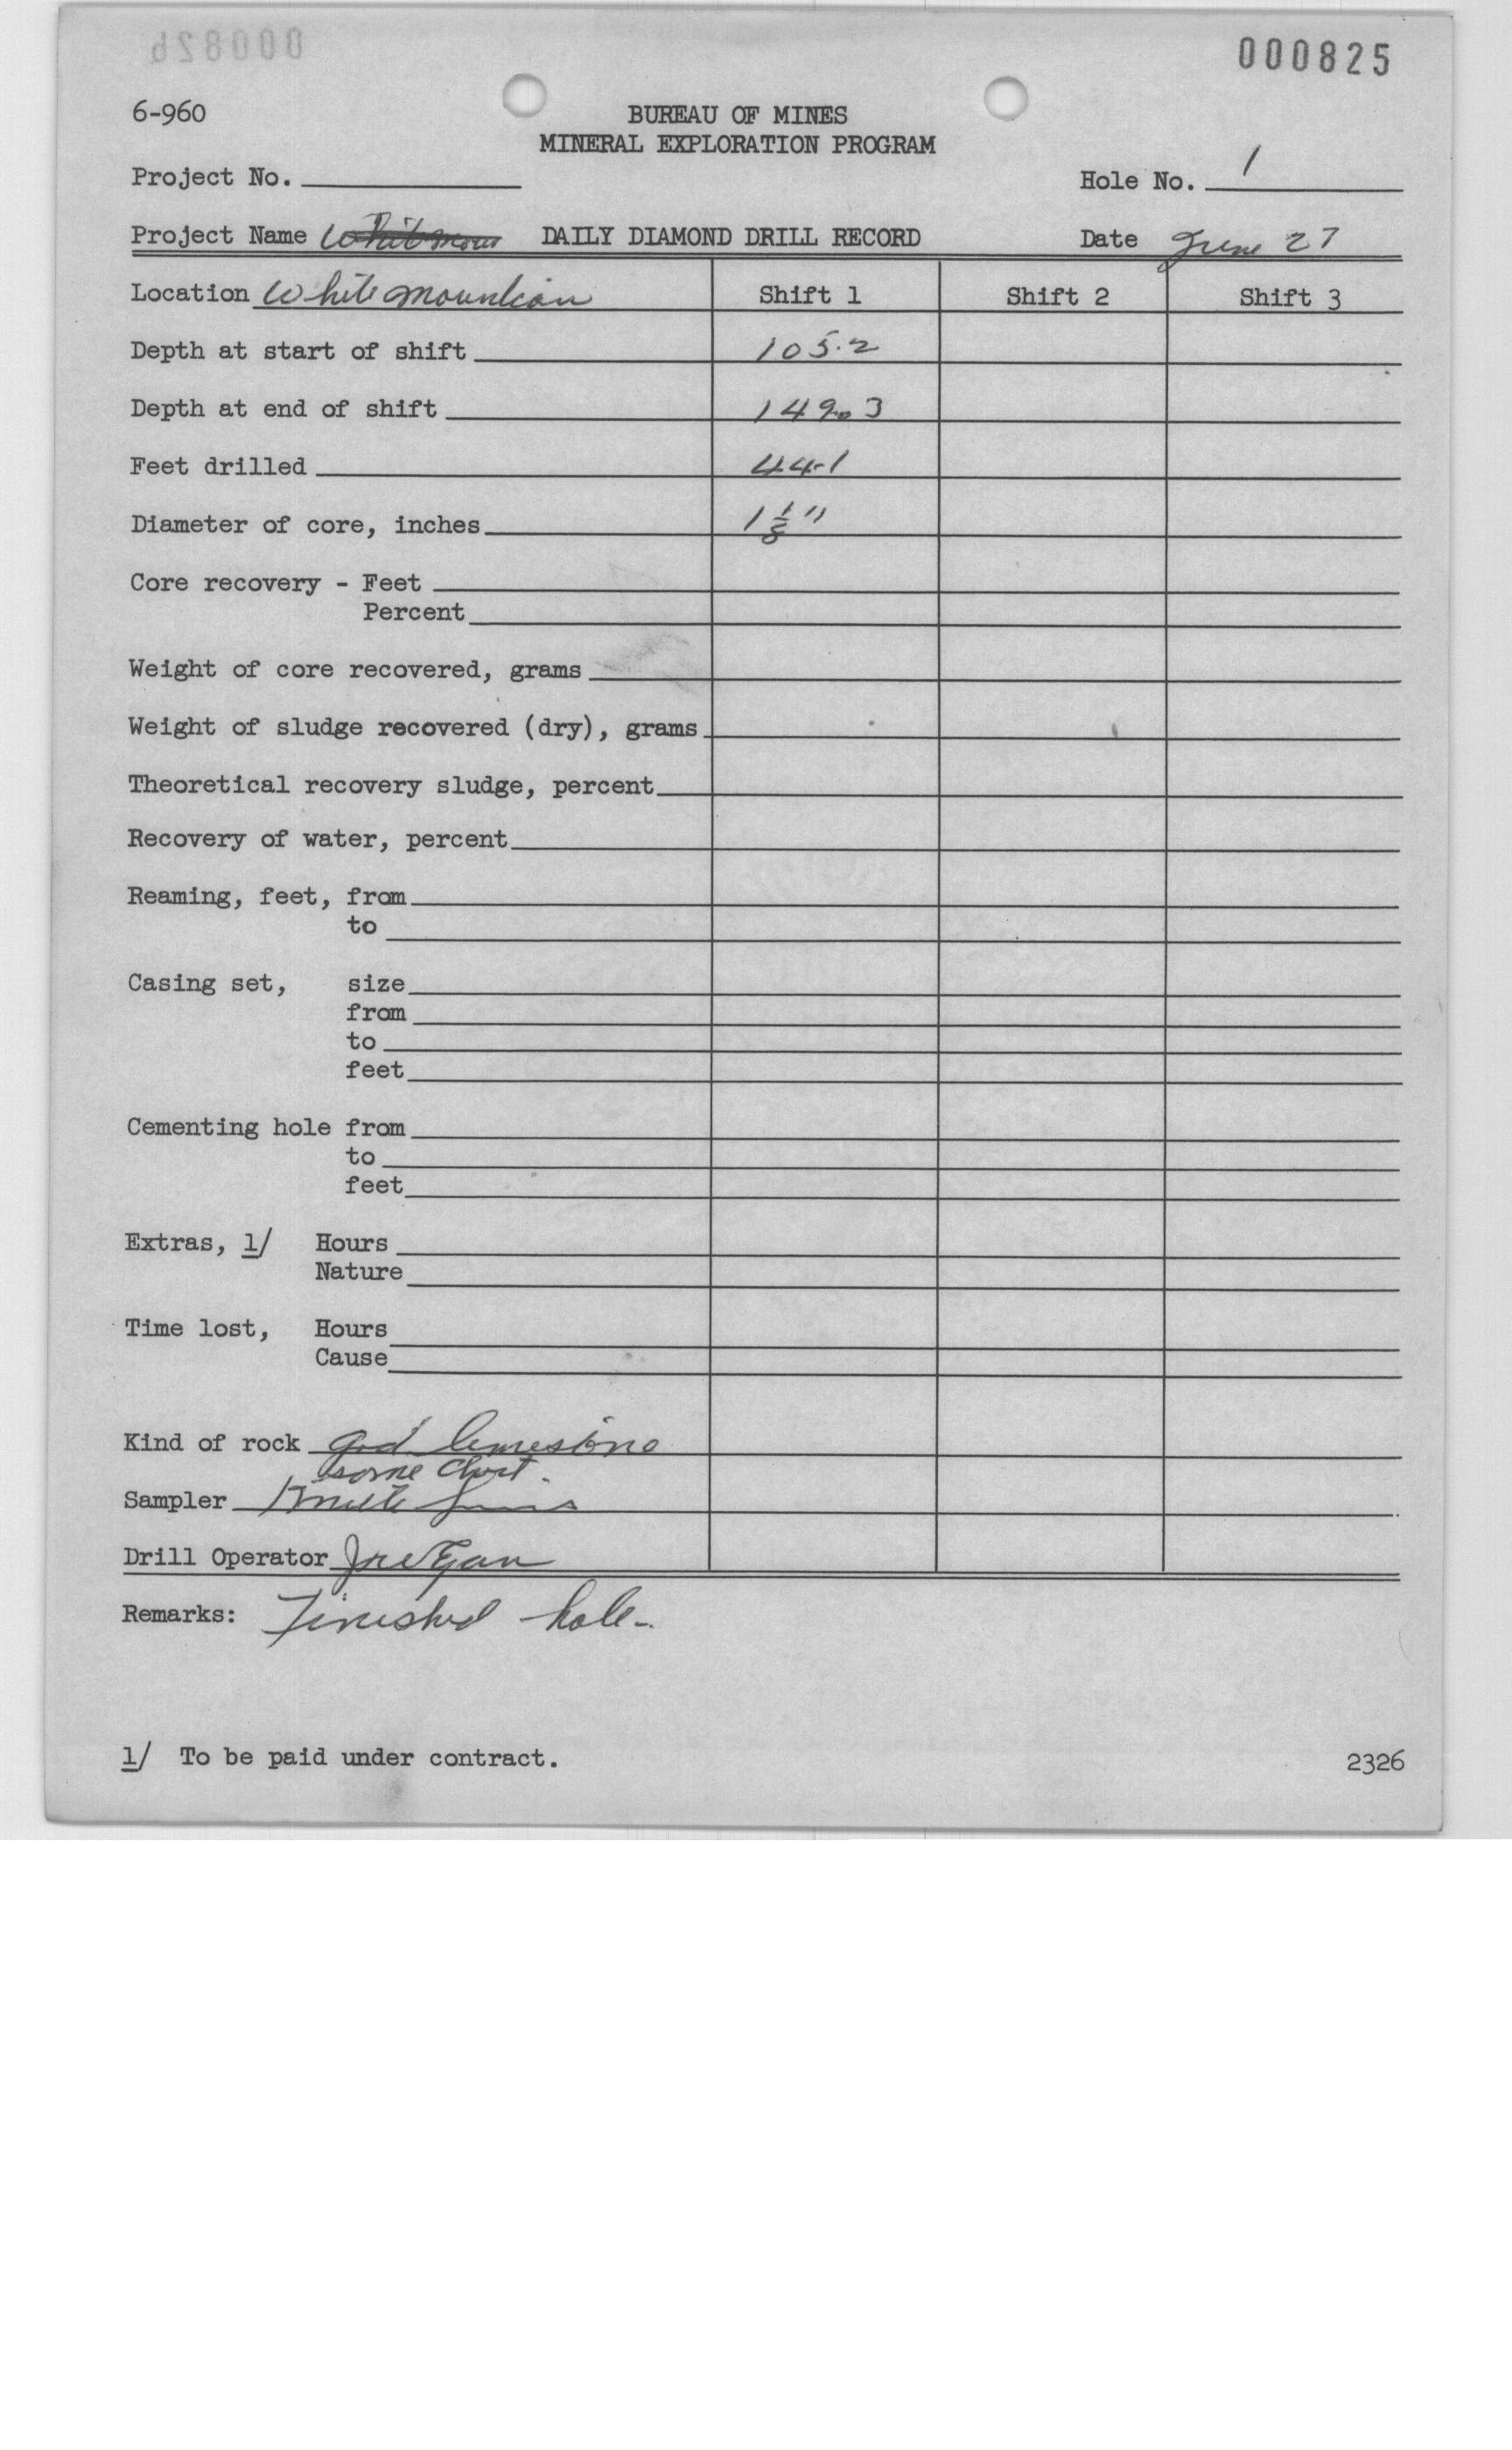 000825
6-960
BUREAU OF MINES
MINERAL EXPLORATION PROGRAM
Project No.
Hole No. 1
Project Name DAILY DIAMOND DRILL RECORD Date June 27
Location White Mountian Shift 1 Shift 2 Shift 3
Depth at start of shift 105.2
Depth at end of shift 149.3
Feet drilled 44.1
Diameter of core, inches 1 1/8"
Core recovery - Feet
Percent
Weight of core recovered, grams
Weight of sludge recovered (dry), grams
Theoretical recovery sludge, percent
Recovery of water, percent
Reaming, feet, from
to
Casing set, size
from
to
feet
Cementing hole from
to
feet
Extras, 1/ Hours
Nature
Time lost, Hours
Cause
Kind of rock limestone
some Chert.
Sampler
Drill Operator Joe Egan
Remarks: Finished hole
1/ To be paid under contract.
2326